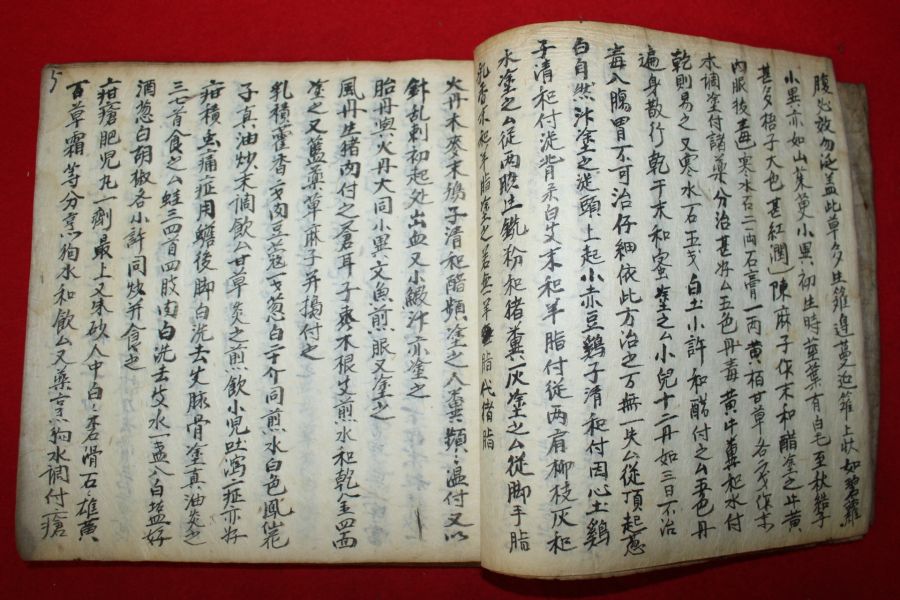 腹必放勿泄盖此草多生籬邊蔓延籬上狀如碧蘿
小異亦如山茱萸小異初生時莖葉有白毛至秋結子
甚多梧子大色甚紅潤 陳麻子作末和醋塗之 黃
內服拔毒 寒水石二兩石膏一兩黃栢甘草各 戔作末
水調塗付諸藥分治甚好 五色丹毒黃牛糞和水付
乾則易之又寒水石五戔白土小許和醋付之 五色丹
遍身散行乾干末和蜜塗之 小兒十二丹如三日不治
毒入腸胃不可治仔細依此方治之万無一失 從頂起葱
白自然汁塗之 從頭上起小赤豆鷄子清和付因心土鷄
子清和付 從背柔白艾末和羊脂付從兩肩柳枝灰和
水塗之 從兩 土銑粉和猪糞灰塗之 從脚手脂
乳香水和羊脂塗之 若無羊脂代猪脂
火丹木麥末鷄子清和醋頻塗之 人糞頻溫付又以
針乱刺初起处出血又小 汁亦塗之
胎丹與火丹大同小異文魚煎服又塗之
風丹生猪肉付之蒼耳子 木根艾煎水和乾 全四面
塗之又藍葉草麻子并搗付之
乳積藿香一戔肉豆蔻一戔葱白一介同煎水白色鳳仙花
子真油炒末調飲 甘草灸之煎飲小兒吐瀉一症亦好
疳積虫痛症用蟾後脚白洗去 脉骨塗真油灸之
三七首食之 蛙三四首四肢肉白洗去 水一盞入白塩好
酒葱白胡椒各小許同炒并食之
疳瘡肥兒丸一劑最上又朱砂人中白 石滑石 雄黃
百草霜等分烹狗水和飲 又藥烹狗水調付瘡
5